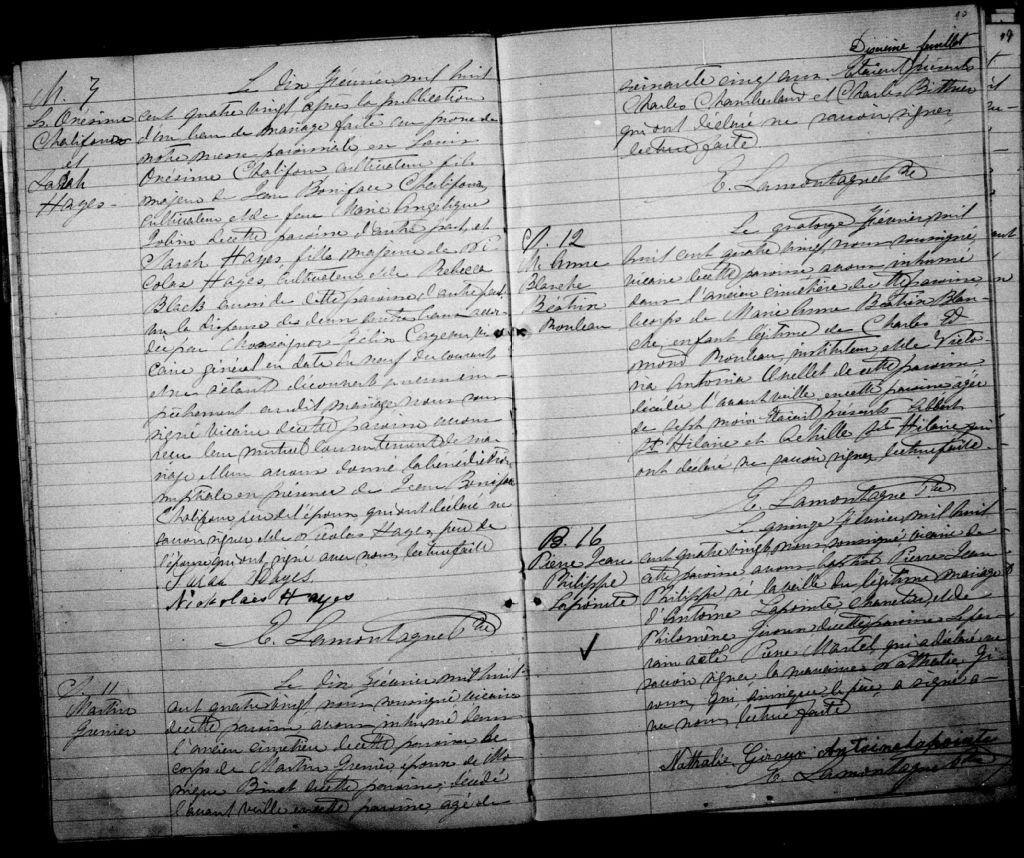 M. 7
L. Onesime
Chalifoux
et
Sarah
Hayes -
Le dix Février mil huit
cent quatre vingt après la publication
d'un ban de mariage faite au prône de
notre messe paroissiale en Louis
Onésime Chalifoux cultivateur fils
majeur de Jean Boniface Chalifoux,
cultivateur et de feue Marie Angélique
Jobin decette paroisse d'autre part, et
Sarah Hayes, fille majeure de Ni
colas Hayes, cultivateur et de Rebecca
Black aussi de cette paroisse d'autre part
vu la dispense des deux autres bans accor-
dée par Monseigneur Félix Cazeau, vi
caire général en date du neuf du courant
et ne s'étant découvert aucun em-
pêchement au dit mariage nous sous
signé vicaire decette paroisse avons
reçu leur mutuel consentement de ma-
riage et leur avons donné la bénédiction
nuptiale en présence de Jean Boniface
Chalifoux père de l'époux qui ont déclaré ne
savoir signer et de Nicolas Hayes, père de
l'épouse qui ont signé avec nous, lecture faite
Sarah Hayes.
Nickolaes Hayes
E. Lamontagne Ptre
S. 11
Martin
Grenier
Le dix Février mil huit-
cent quatre vingt nous soussigné vicaire
decette paroisse avons inhumé dans
l'ancien cimetière decette paroisse le
corps de Martin Grenier, époux de Mo
nique Binet decette paroisse, décédé
l'avant veille en cette paroisse, age de
10
Dixième feuillet
soixante cinq ans. Etaient présents
Charles Chamberland et Charles Bittner
qui ont déclaré ne savoir signer,
lecture faite.
E. Lamontagne Ptre
S. 12
M. Anne
Blanche
Béatrix
Rouleau
Le quatorze Février, mil
huit cent quatre vingt, nous soussigné,
vicaire decette paroisse avons inhumé
dans l'ancien cimetière de cette paroisse
le corps de Marie Anne Béatrix Blan-
che, enfant légitime de Charles Ed
mond Rouleau, instituteur et de Victo
ria Antonia Ouellet de cette paroisse
décédée l'avant veille en cette paroisse agée
de sept mois. Etaient présents Albert
St Hilaire et Achille St Hilaire qui
ont déclaré ne savoir signer, lecture faite.
E. Lamontagne Ptre
B. 16
Pierre Jean
Philippe
Lapointe
Le quinze Février, mil huit
cent quatre vingt, nous soussigné vicaire de
cette paroisse avons baptisé Pierre Jean
Philippe né la veille du légitime mariage
d'Antoine Lapointe, charretier, et de
Philomène Giroux decette paroisse. Le par-
rain a été Pierre Martel, qui a déclaré ne
savoir signer, la marraine Nathalie Gi
roux, qui, ainsi que le père a signé a-
vec nous, lecture faite
Nathalie Giroux Antoine Lapointe
E. Lamontagne Ptre